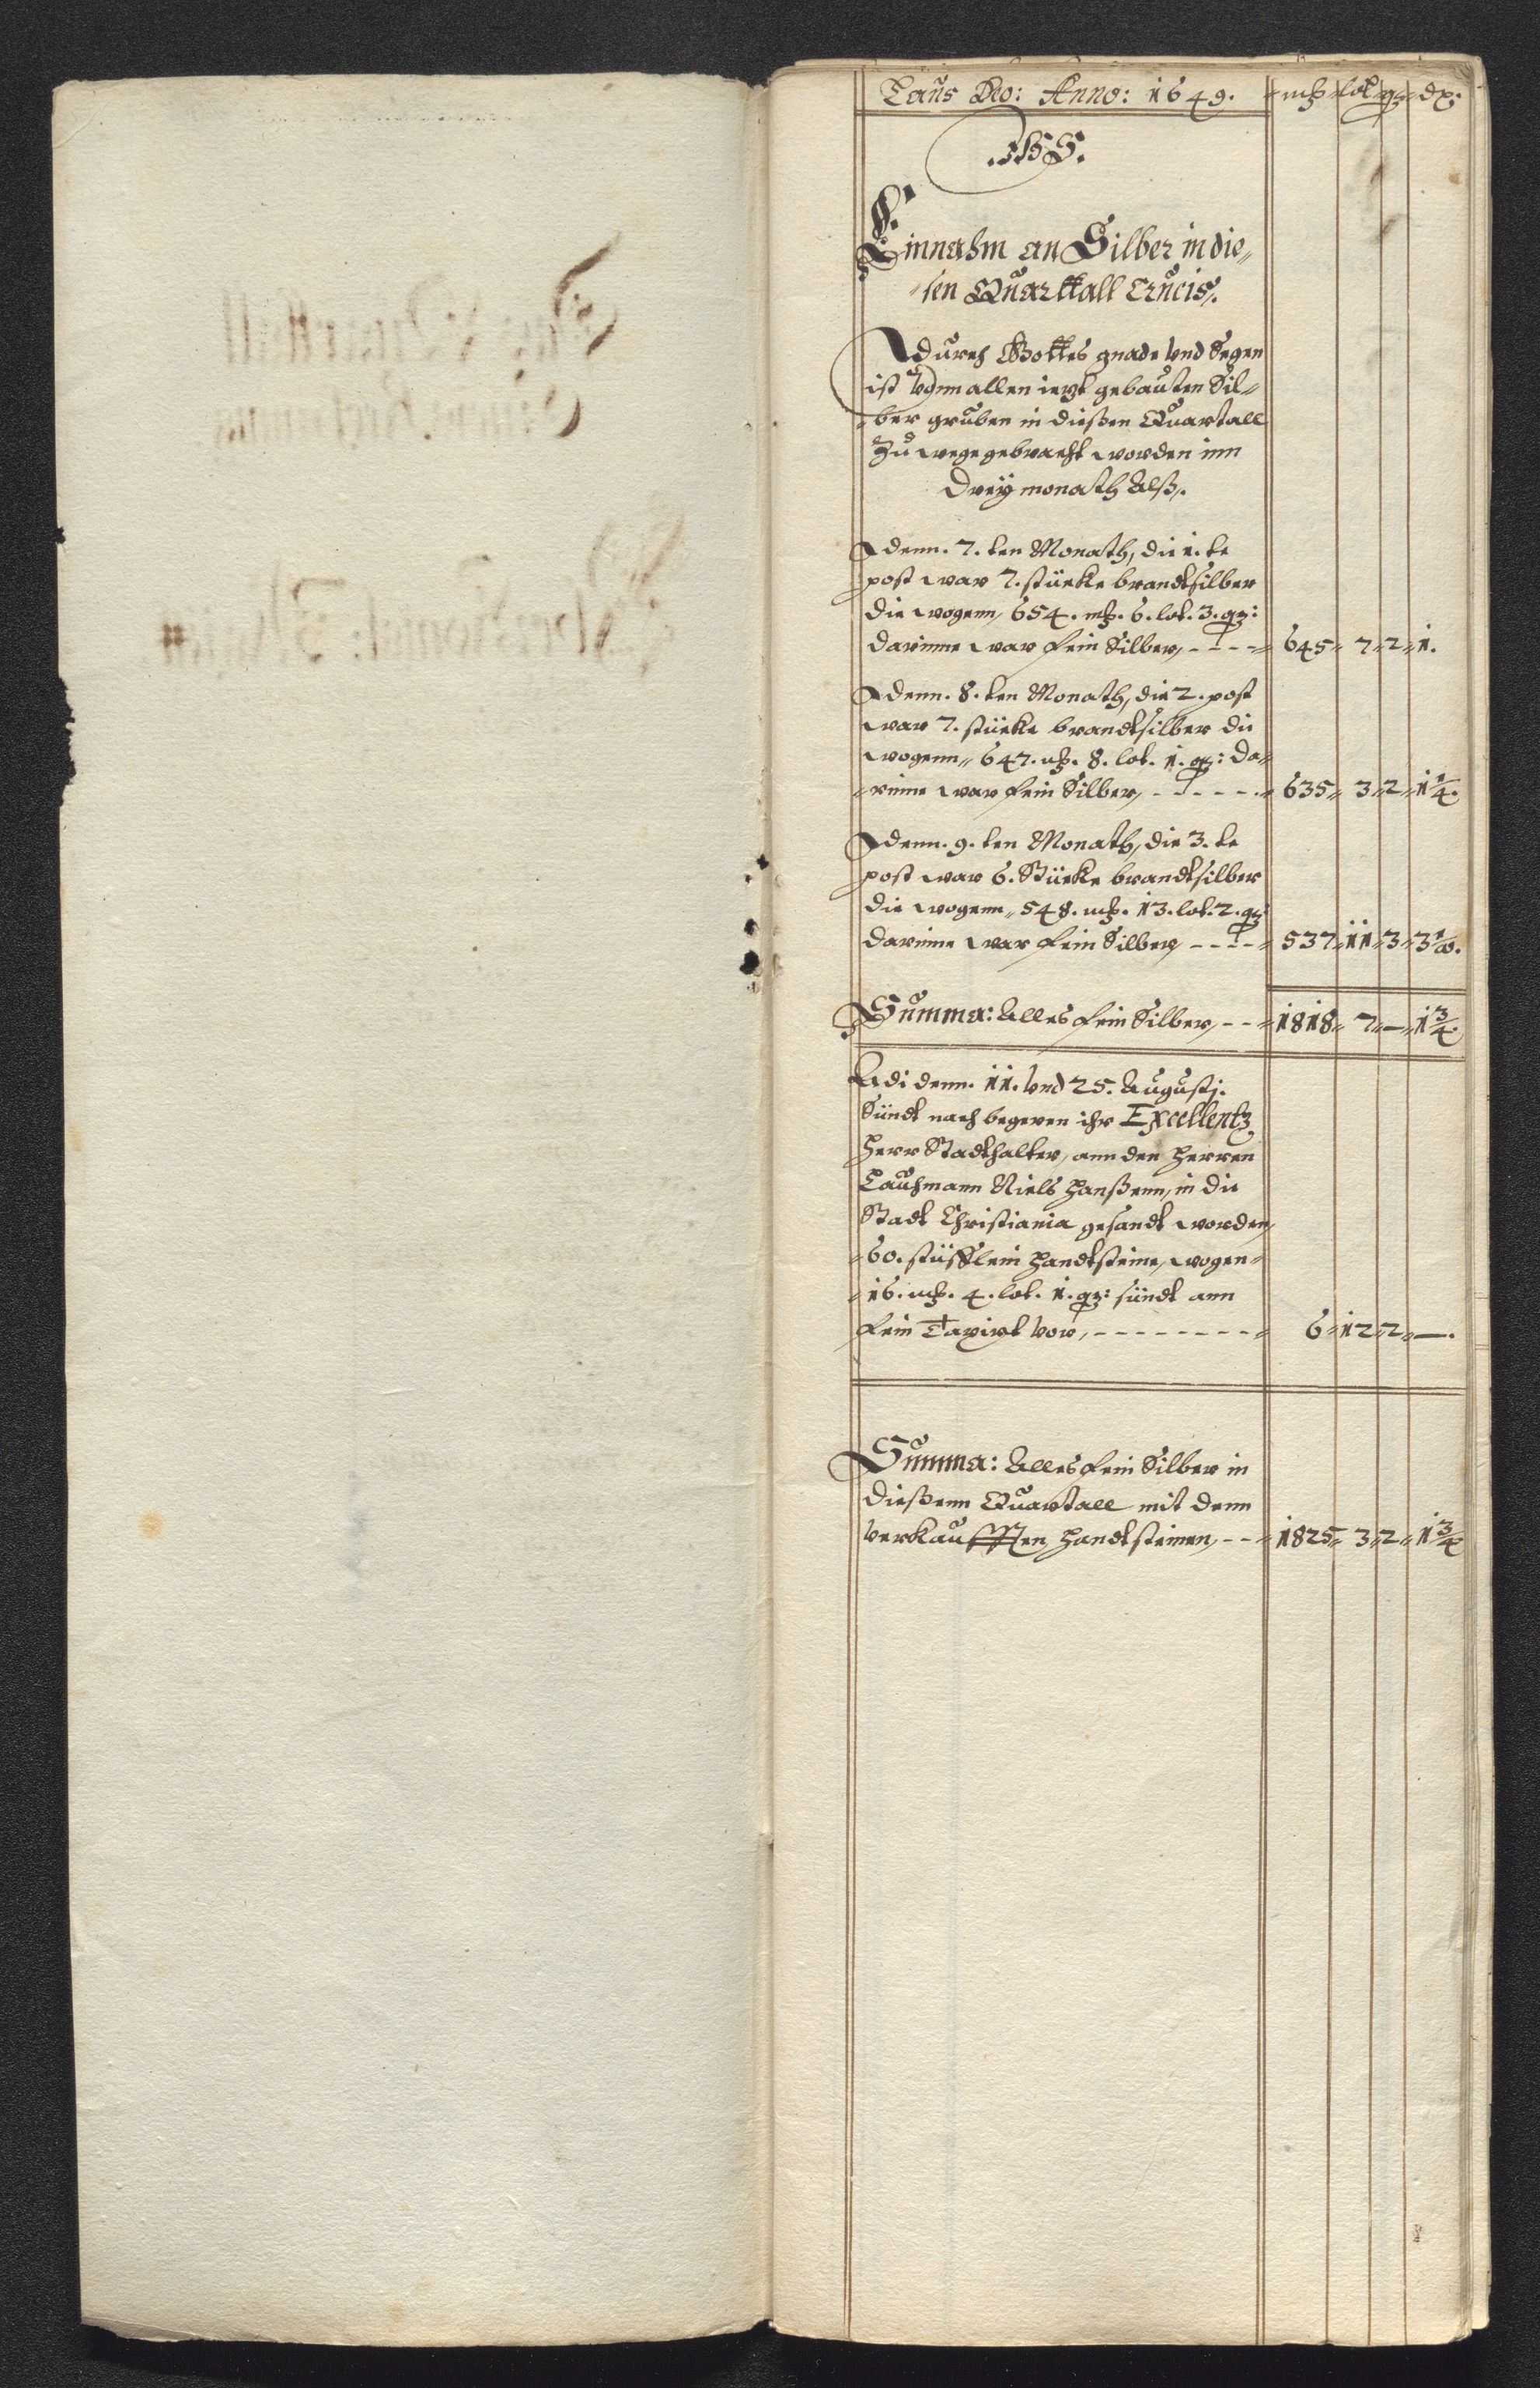 Laus Deo: Anno: 1649. mk lot qz dₓ.
Einnahm an Silber in die„
„sen Quarttall Crucis.
durch Gottes gnade vnd Segen
ist vonn allen ietzt gebauten Sil„
„ber gruben in dießen Quartall
Zu wege gebracht worden inn
Dreÿ monath Alß.
denn. 7. ten Monath, die 1. te
post war 7. stücke brandtsilber
die wogenn, 654. mk. 6. lot. 3. qz:
darinne war fein Silber, - - - - 645„ 7„ 2„ 1.
denn. 8. ten Monath, die 2. post
war 7. stücke brandtsilber die
wogenn„ 647. mk. 8. lot. 1. qz: da„
„rinne war fein Silber, - - - - - 635„ 3„ 2„ 1 1/4.
denn. 9. ten Monath, die 3. te
post war 6. Stücke brandtsilber
die wogenn„ 548. mk. 13. lot. 2. qz
darinne war fein Silber - - - - 537„ 11„ 3„ 3 1/2.
Summa: Alles fein Silber, - - 1818„ 7„ — „ 1 3/4
Adi denn. 11. vnd 25. Augustj.
Sündt nach begeren ihr Excellentz
Herr Stadthalter, ann den Herren
Lauhmann Niels Hanßenn, in die
Stadt Christiania gesandt worden,
„60. stüfflein Handtsteine, wogen„
„16. mk. 4. lot. 1. qz: sündt ann
fein Taxirt vor, - - - - - - - - 6„ 12„ 2„ —.
Summa: Alles fein Silber in
dießenn Quartall mit denn
verkaufften Handtsteinen, - - 1825„ 3„ 2„ 1 3/4